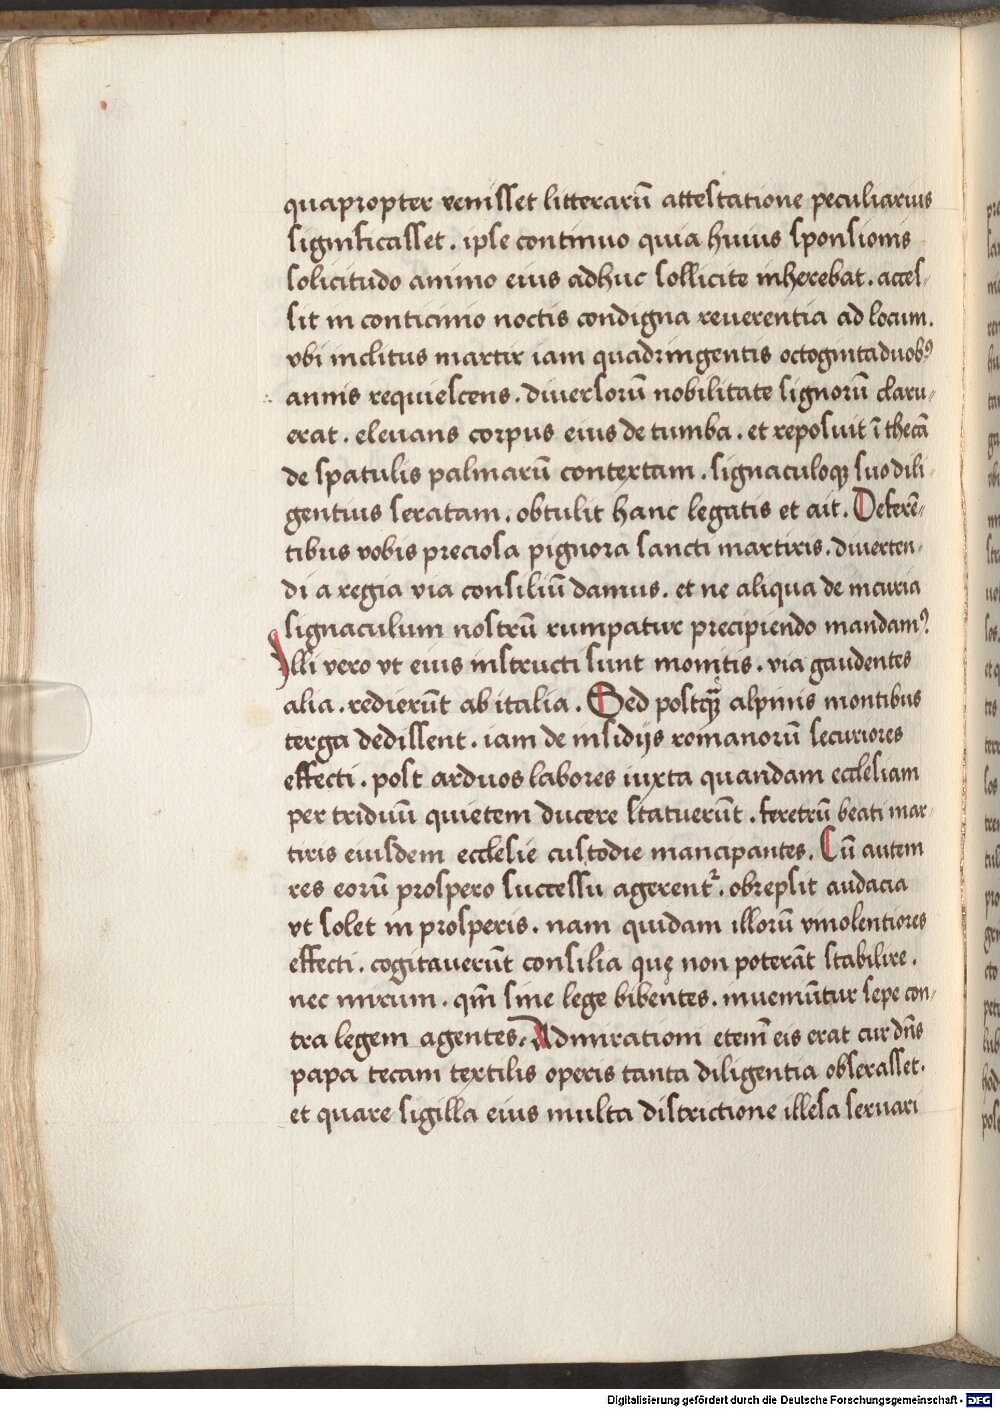 quapropter venisset litterarū attestatione peculiarius
significasset. ipse continuo quia huius sponsionis
solicitudo animo eius adhuc sollicite inherebat. acces-
sit in conticinio noctis condigna reuerentia ad locum.
vbi inclitus martir iam quadringentis octogintaduobꝰ
annis requiescens. diuersorū nobilitate signorū claru-
erat. eleuans corpus eius de tumba. et reposuit ī thecā
de spatulis palmarū contextam. signaculoqꝫ suo dili-
gentius seratam. obtulit hanc legatis et ait. Deferē-
tibus vobis preciosa pignora sancti martiris. diuerten-
di a regia via consiliū damus. et ne aliqua de incuria
signaculum nostrū rumpatur precipiendo mandamꝰ.
Illi vero vt eius instructi sunt monitis. via gaudentes
alia. redierūt ab italia. Sed postqꝫ̄ alpinis montibus
terga dedissent. iam de insidijs romanorū securiores
effecti. post arduos labores iuxta quandam ecclesiam
per triduū quietem ducere statuerūt. feretrū beati mar-
tiris eiusdem ecclesie custodie mancipantes. Cū autem
res eorū prospero successu agerent᷑. obrepsit audacia
vt solet in prosperis. nam quidam illorū vinolentiores
effecti. cogitauerūt consilia quę non poterāt stabilire.
nec mirum. qm̄ sine lege bibentes. inueniūtur sepe con-
tra legem agentes. Admirationi eteni̅ eis erat cur dn̄s
papa tecam textilis operis tanta diligentia obserasset.
et quare sigilla eius multa districtione illesa seruari
Digitalisierung gefördert durch die Deutsche Forschungsgemeinschaft - DFG